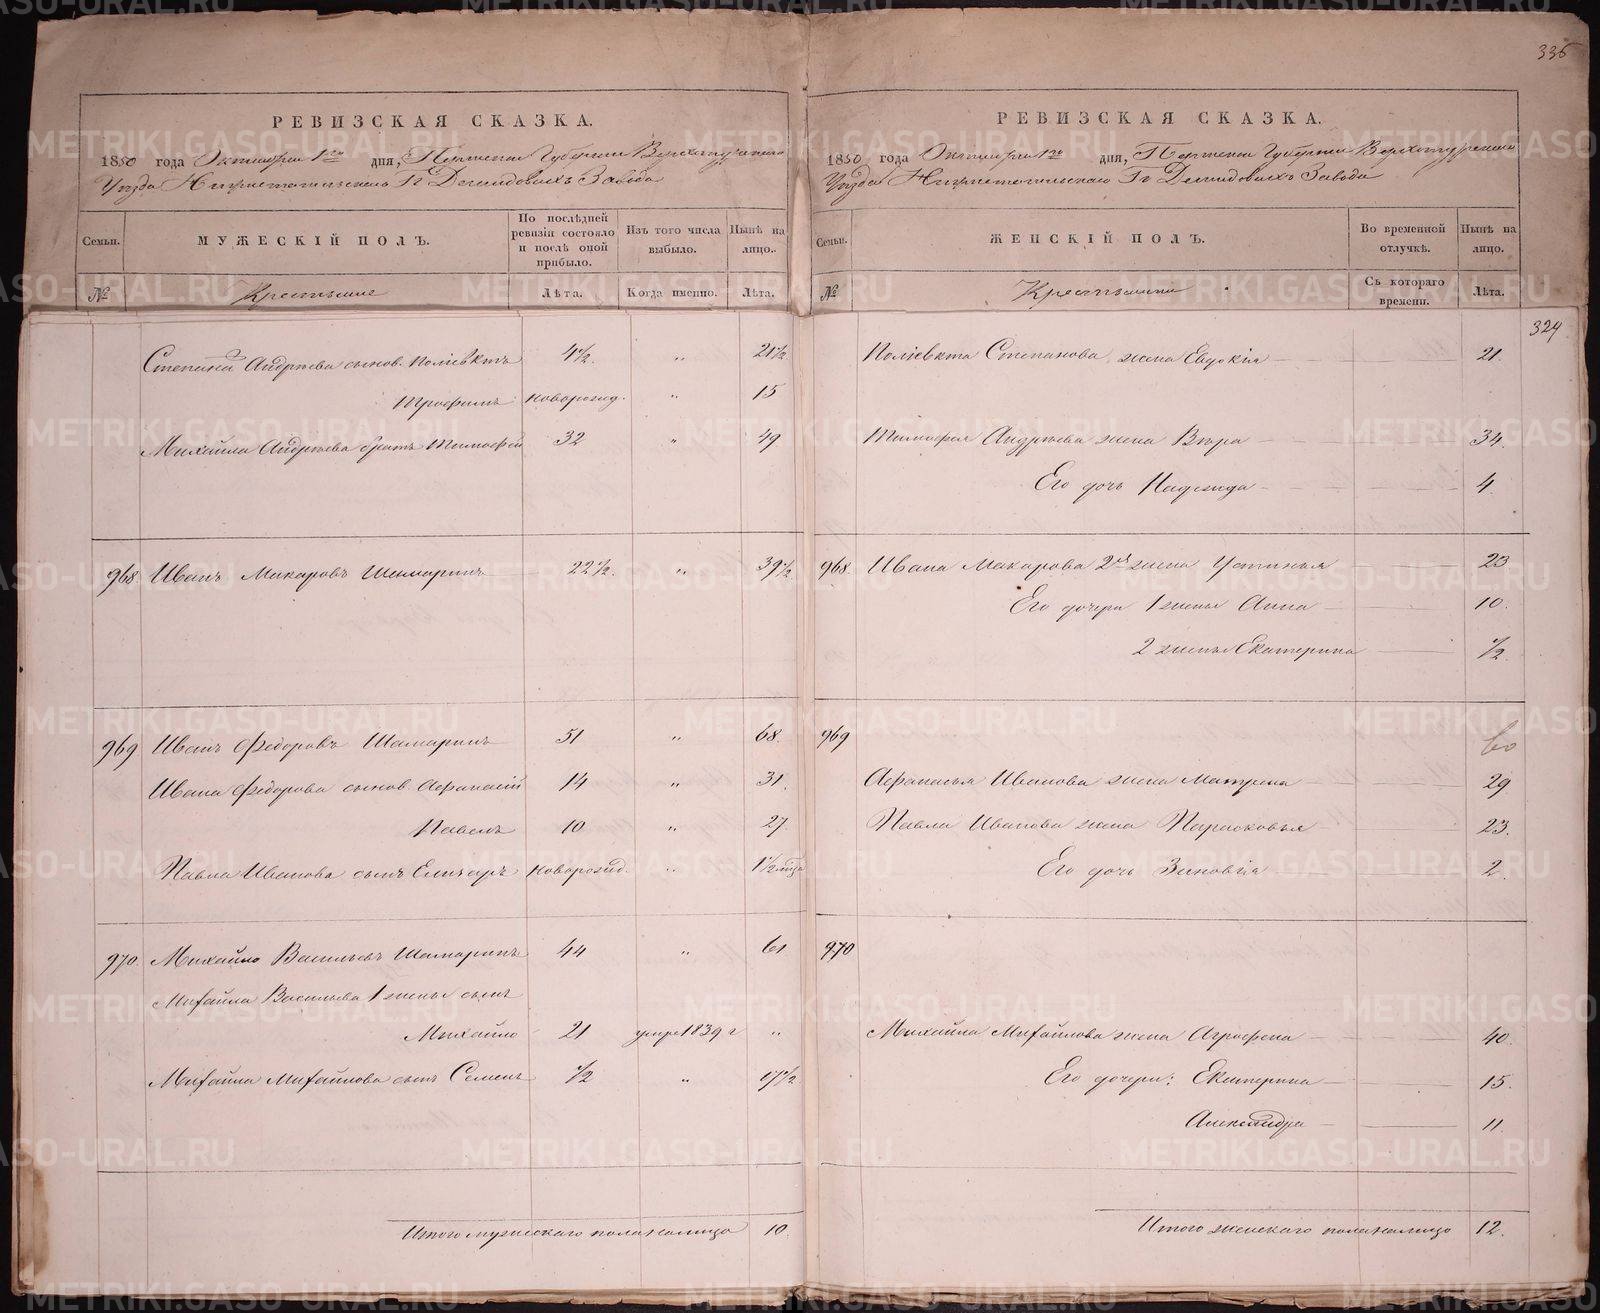 335
РЕВИЗСКАЯ СКАЗКА.
1850 года Октября 1го дня, Пермской Губернии Верхотурского
Уезда Нижнетагильскаго Гг Демидовыхъ Завода
Семьи.
МУЖЕСКІЙ ПОЛЪ.
По послѣдней ревизіи состояло и послѣ оной прибыло.
Изъ того числа выбыло.
Нынѣ на лицо.
№
Крестьяне
Лѣта.
Когда именно.
Лѣта.
Степана Андреева сынов. Поліевктъ 4½. " 21½
Трофимъ новорожд. " 15
Михайла Андреева братъ Тимофей 32 " 49
968. Иванъ Макаровъ Шамаринъ 22½. " 39½
969 Иванъ Федоровъ Шамаринъ 51 " 68.
Ивана Федорова сынов. Афанасій 14 " 31.
Павелъ 10 " 27.
Павла Иванова сынъ Елизаръ новорожд. " 1½ мца
970. Михайло Васильевъ Шамаринъ 44 " 61
Михайла Васильева 1 жены сынъ
Михайло 21 умре 1839 г "
Михайла Михайлова сынъ Семенъ ½ " 17½
Итого мужескаго пола налицо 10.
РЕВИЗСКАЯ СКАЗКА.
1850 года Октября 1го дня, Пермской Губернии Верхотурскаго
Уезда Нижнетагильскаго Гг Демидовыхъ Завода
Семьи.
ЖЕНСКІЙ ПОЛЪ.
Во временной отлучкѣ.
Нынѣ на лицо.
№
Крестьянки
Съ котораго времени.
Лѣта.
324
Поліевкта Степанова жена Евдокія 21.
Тимофея Андреева жена Вѣра 34.
Его дочь Надежда 4.
968. Ивана Макарова 2я жена Устинья 23
Его дочери 1 жены Анна 10.
2 жены Екатерина ½.
969
Афанасья Иванова жена Матрена 29
Павла Иванова жена Парасковья 23.
Его дочь Зиновія 2.
970
Михайла Михайлова жена Аграфена 40.
Его дочери: Екатерина 15.
Александра 11.
Итого женскаго пола налицо 12.